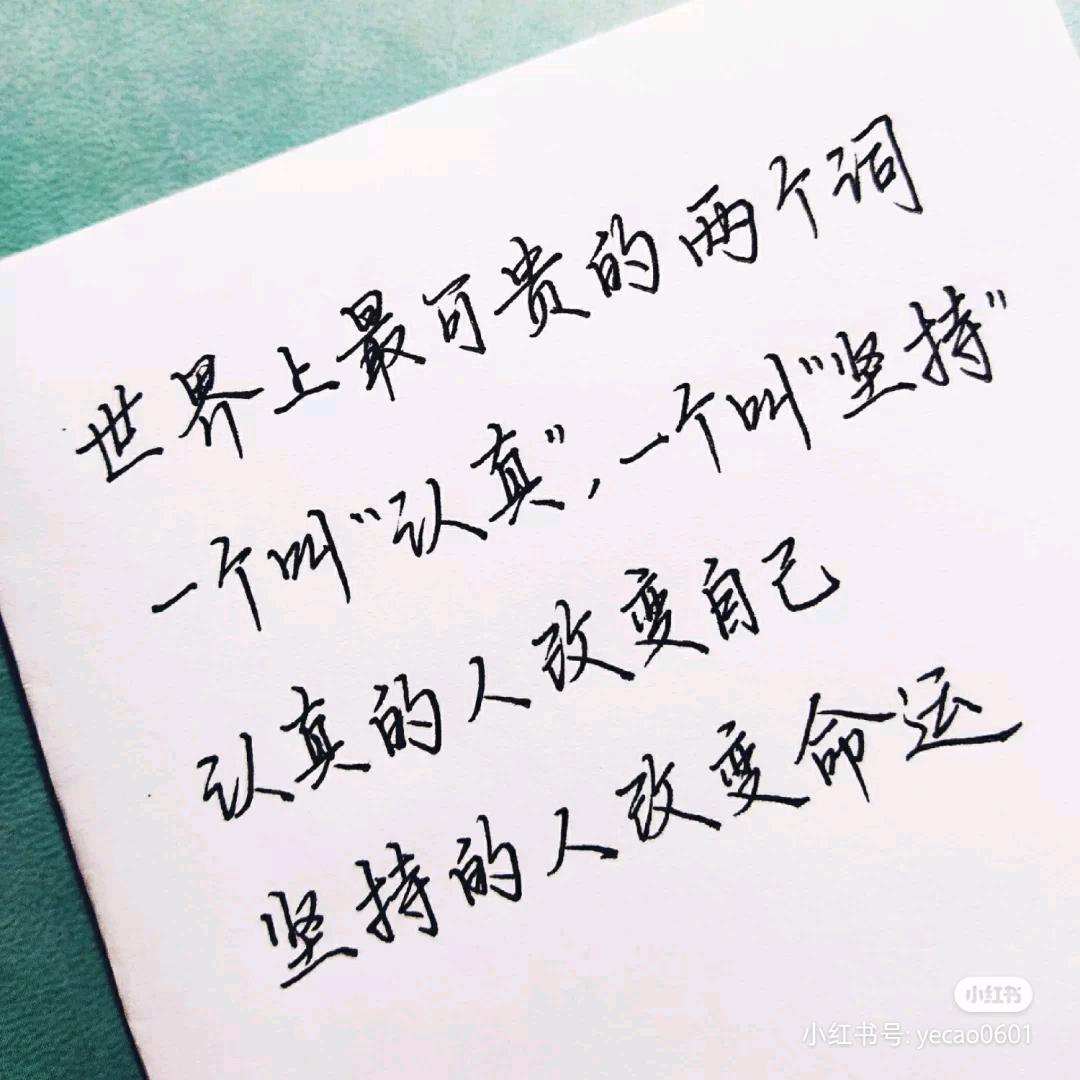 世界上最可贵的两个词
一个叫“认真”,一个叫“坚持”
认真的人改变自己
坚持的人改变命运
小红书
小红书号: yecao0601